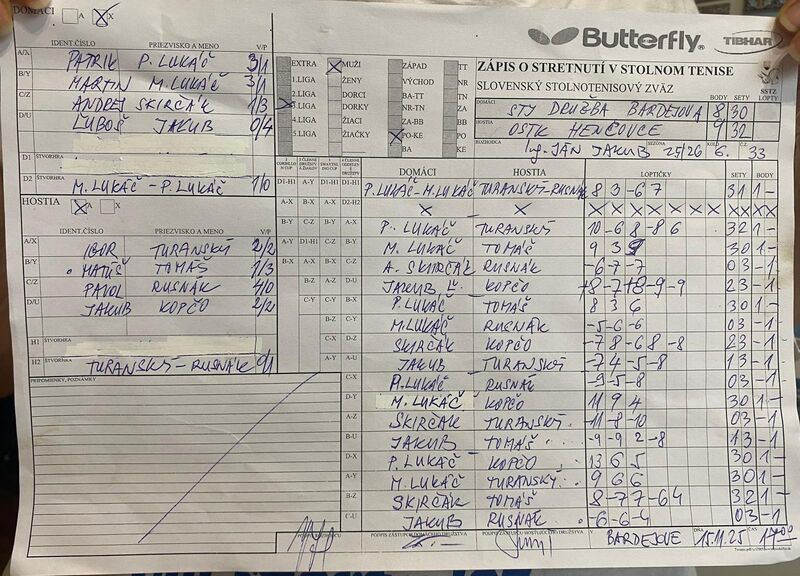 DOMÁCI A X
Butterfly TIBHAR
IDENT.ČÍSLO PRIEZVISKO A MENO V/P
A/X PATRIK P. LUKÁČ 3/1
B/Y MARTIN M. LUKÁČ 3/1
C/Z ANDREJ SKIRČÁK 1/3
D/U ĽUBOŠ JAKUB 0/4
D1 ŠTVORHRA
D2 M. LUKÁČ - P. LUKÁČ 1/0
EXTRA MUŽI ZÁPAD TT
1.LIGA ŽENY VÝCHOD NR
2.LIGA DORCI BA-TT TN
3.LIGA DORKY NR-TN ZA
4.LIGA ŽIACI ZA-BB BB
5.LIGA ŽIAČKY PO-KE PO
BA KE
ZÁPIS O STRETNUTÍ V STOLNOM TENISE
SLOVENSKÝ STOLNOTENISOVÝ ZVÄZ
BODY SETY LOPTY
DOMÁCI STJ DRUŽBA BARDEJOV 8 30
HOSTIA OSTK HENCOVCE 9 32
ROZHODCA Ing. JÁN JAKUB SEZÓNA 25/26 KOLO 6. Č.Z. 33
HOSTIA A X
IDENT.ČÍSLO PRIEZVISKO A MENO V/P
A/X IGOR TURANSKÝ 2/2
B/Y MATÚŠ TOMÁŠ 1/3
C/Z PAVOL RUSNÁK 4/0
D/U JAKUB KOPČO 2/2
H1 ŠTVORHRA
H2 ŠTVORHRA TURANSKÝ - RUSNÁK 0/1
PRIPOMIENKY, POZNÁMKY
DOMÁCI HOSTIA LOPTIČKY SETY BODY
D1-H1 A-Y D1-H1 D1-H1 P. LUKÁČ - M. LUKÁČ TURANSKÝ - RUSNÁK 8 3 -6 7 3 1 1 -
A-X B-X A-X D2-H2 X X X X X X X X X X X X X X
B-Y C-Z B-Y A-X P. LUKÁČ TURANSKÝ 10 -6 8 -8 6 3 2 1 -
A-Y D1-H1 C-Z B-Y M. LUKÁČ TOMÁŠ 9 3 9 3 0 1 -
B-X A-X B-X C-Z A. SKIRČÁK RUSNÁK -6 -7 -7 0 3 -1
B-Z A-Z D-U JAKUB Ľ. KOPČO +8 -7 +8 -9 -9 2 3 -1
C-Y C-Y B-X P. LUKÁČ TOMÁŠ 8 3 6 3 0 1 -
B-Z C-Y M. LUKÁČ RUSNÁK -5 -6 -6 0 3 -1
C-X D-Z SKIRČÁK KOPČO -7 8 -6 8 -8 2 3 -1
A-Y A-U JAKUB TURANSKÝ -7 4 -5 -8 1 3 -1
C-X P. LUKÁČ RUSNÁK -9 -5 -8 0 3 -1
D-Y M. LUKÁČ KOPČO 11 9 4 3 0 1 -
A-Z SKIRČÁK TURANSKÝ -11 -8 -10 0 3 -1
B-U JAKUB TOMÁŠ -9 -9 2 -8 1 3 -1
D-X P. LUKÁČ KOPČO 13 6 5 3 0 1 -
A-Y M. LUKÁČ TURANSKÝ 9 6 6 3 0 1 -
B-Z SKIRČÁK TOMÁŠ 8 -7 7 -6 4 3 2 1 -
C-U JAKUB RUSNÁK -6 -6 -4 0 3 -1
PODPIS ZÁSTUPCU DOMÁCEHO DRUŽSTVA PODPIS ZÁSTUPCU HOSŤUJÚCEHO DRUŽSTVA V BARDEJOVE DŇA 15.11.25 17:00